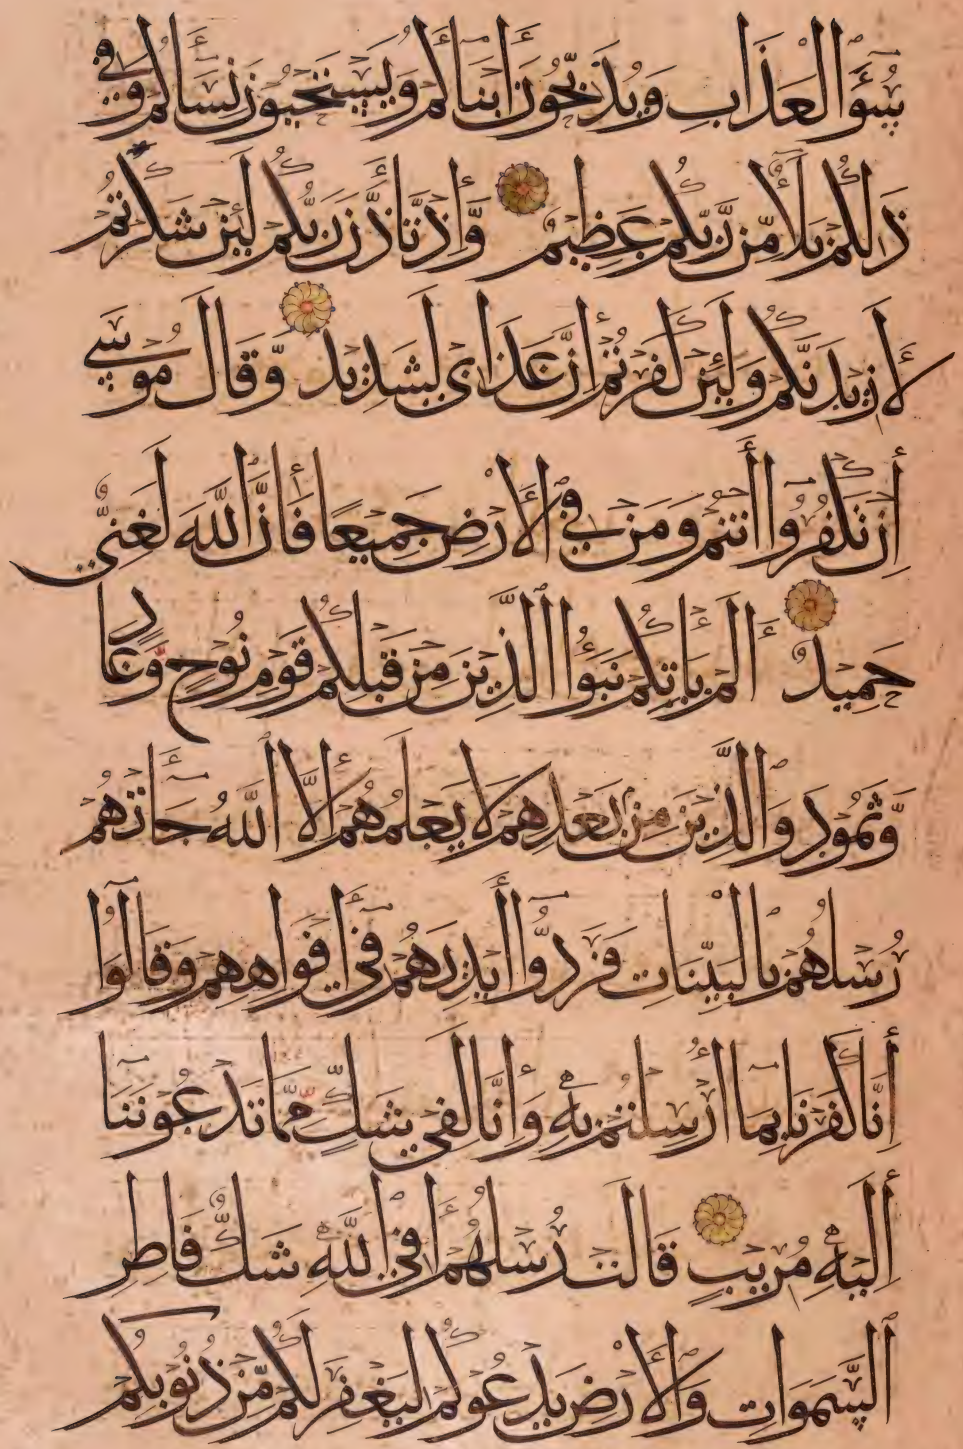 سُوٓءَ الْعَذَابِ وَيُذَبِّحُونَ اَبْنَآءَكُمْ وَيَسْتَحْيُونَ نِسَآءَكُمْ وَفِي
ذَٰلِكُمْ بَلَآءٌ مِّن رَّبِّكُمْ عَظِيمٌ وَّإِذْ تَأَذَّنَ رَبُّكُمْ لَئِنْ شَكَرْتُمْ
لَأَزِيدَنَّكُمْ وَلَئِنْ كَفَرْتُمْ إِنَّ عَذَابِي لَشَدِيدٌ وَّقَالَ مُوسَىٰ
إِنْ تَكْفُرُوٓا أَنْتُمْ وَمَنْ فِي الْأَرْضِ جَمِيعًا فَإِنَّ اللَّهَ لَغَنِيٌّ
حَمِيدٌ أَلَمْ يَأْتِكُمْ نَبَؤُا الَّذِينَ مِنْ قَبْلِكُمْ قَوْمِ نُوحٍ وَّعَادٍ
وَّثَمُودَ وَالَّذِينَ مِنْ بَعْدِهِمْ لَا يَعْلَمُهُمْ إِلَّا اللَّهُ جَآءَتْهُمْ
رُسُلُهُمْ بِالْبَيِّنَاتِ فَرَدُّوٓا أَيْدِيَهُمْ فِيٓ أَفْوَاهِهِمْ وَقَالُوٓا
إِنَّا كَفَرْنَا بِمَآ أُرْسِلْتُمْ بِهِ وَإِنَّا لَفِي شَكٍّ مِّمَّا تَدْعُونَنَآ
إِلَيْهِ مُرِيبٍ قَالَتْ رُسُلُهُمْ أَفِي اللَّهِ شَكٌّ فَاطِرِ
السَّمَوَاتِ وَالْأَرْضِ يَدْعُوكُمْ لِيَغْفِرَ لَكُمْ مِّنْ ذُنُوبِكُمْ